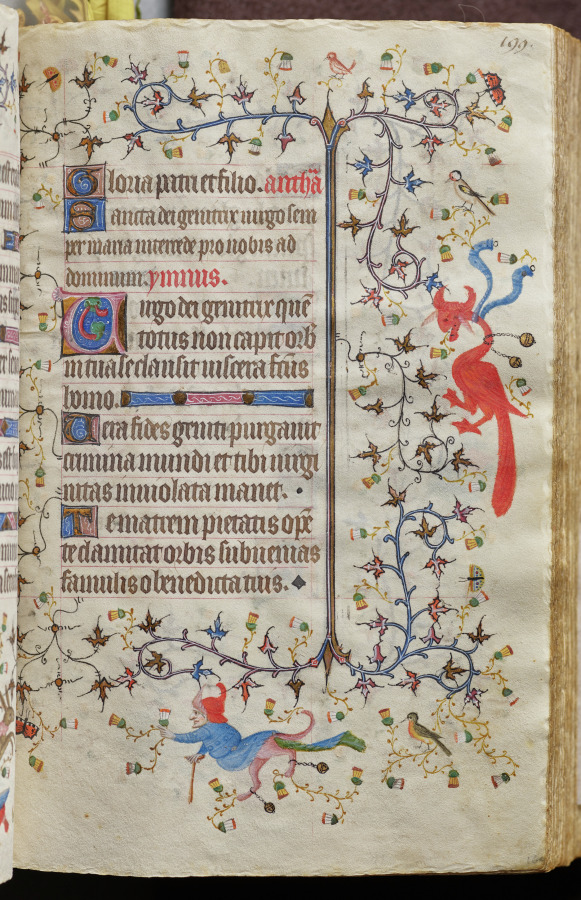 199.
Gloria patri et filio. anthā
Sancta dei genitrix uirgo sem
per maria intercede pro nobis ad
dominum. ymnus.
Uirgo dei genitrix quē
totus non capit orb
in tua se clausit uiscera fcūs
homo.
Uera fides geniti purgauit
crimina mundi et tibi uirgi
nitas inuiolata manet.
Te matrem pietatis opē
te clamitat orbis subuenias
famulis o benedicta tuis.